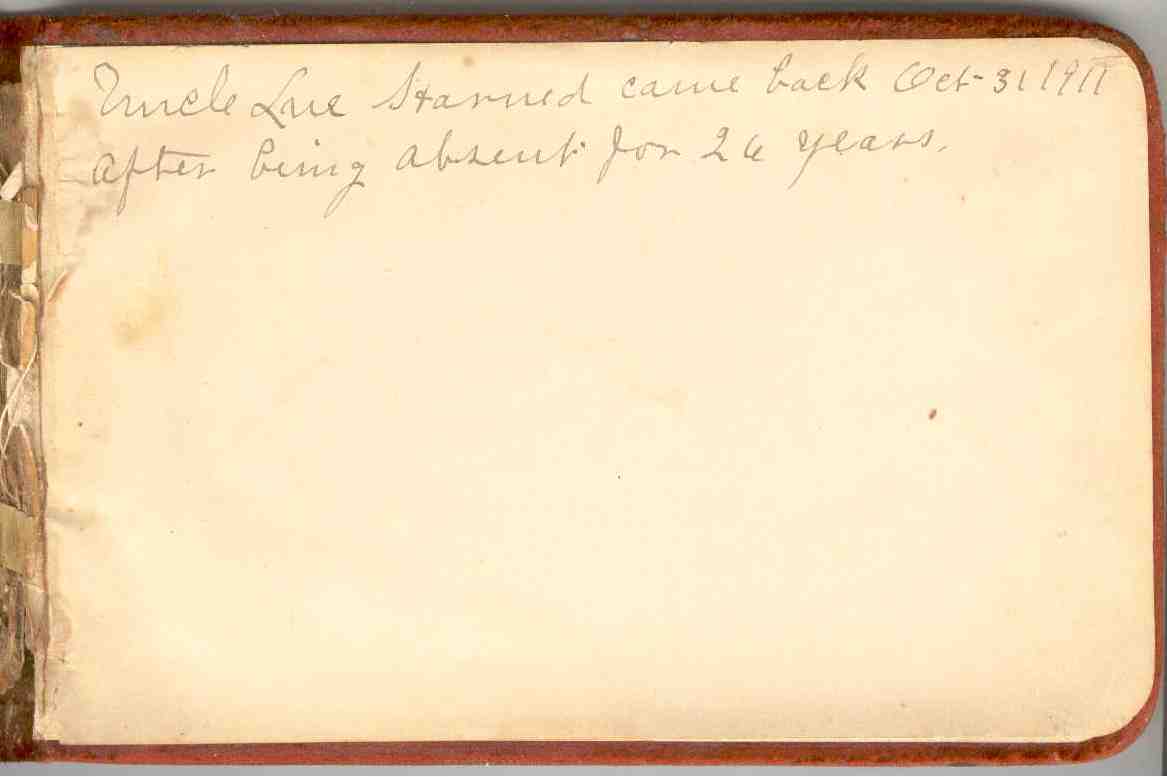 Uncle Lue Starned came back Oct 31 1911
after being absent for 26 years.